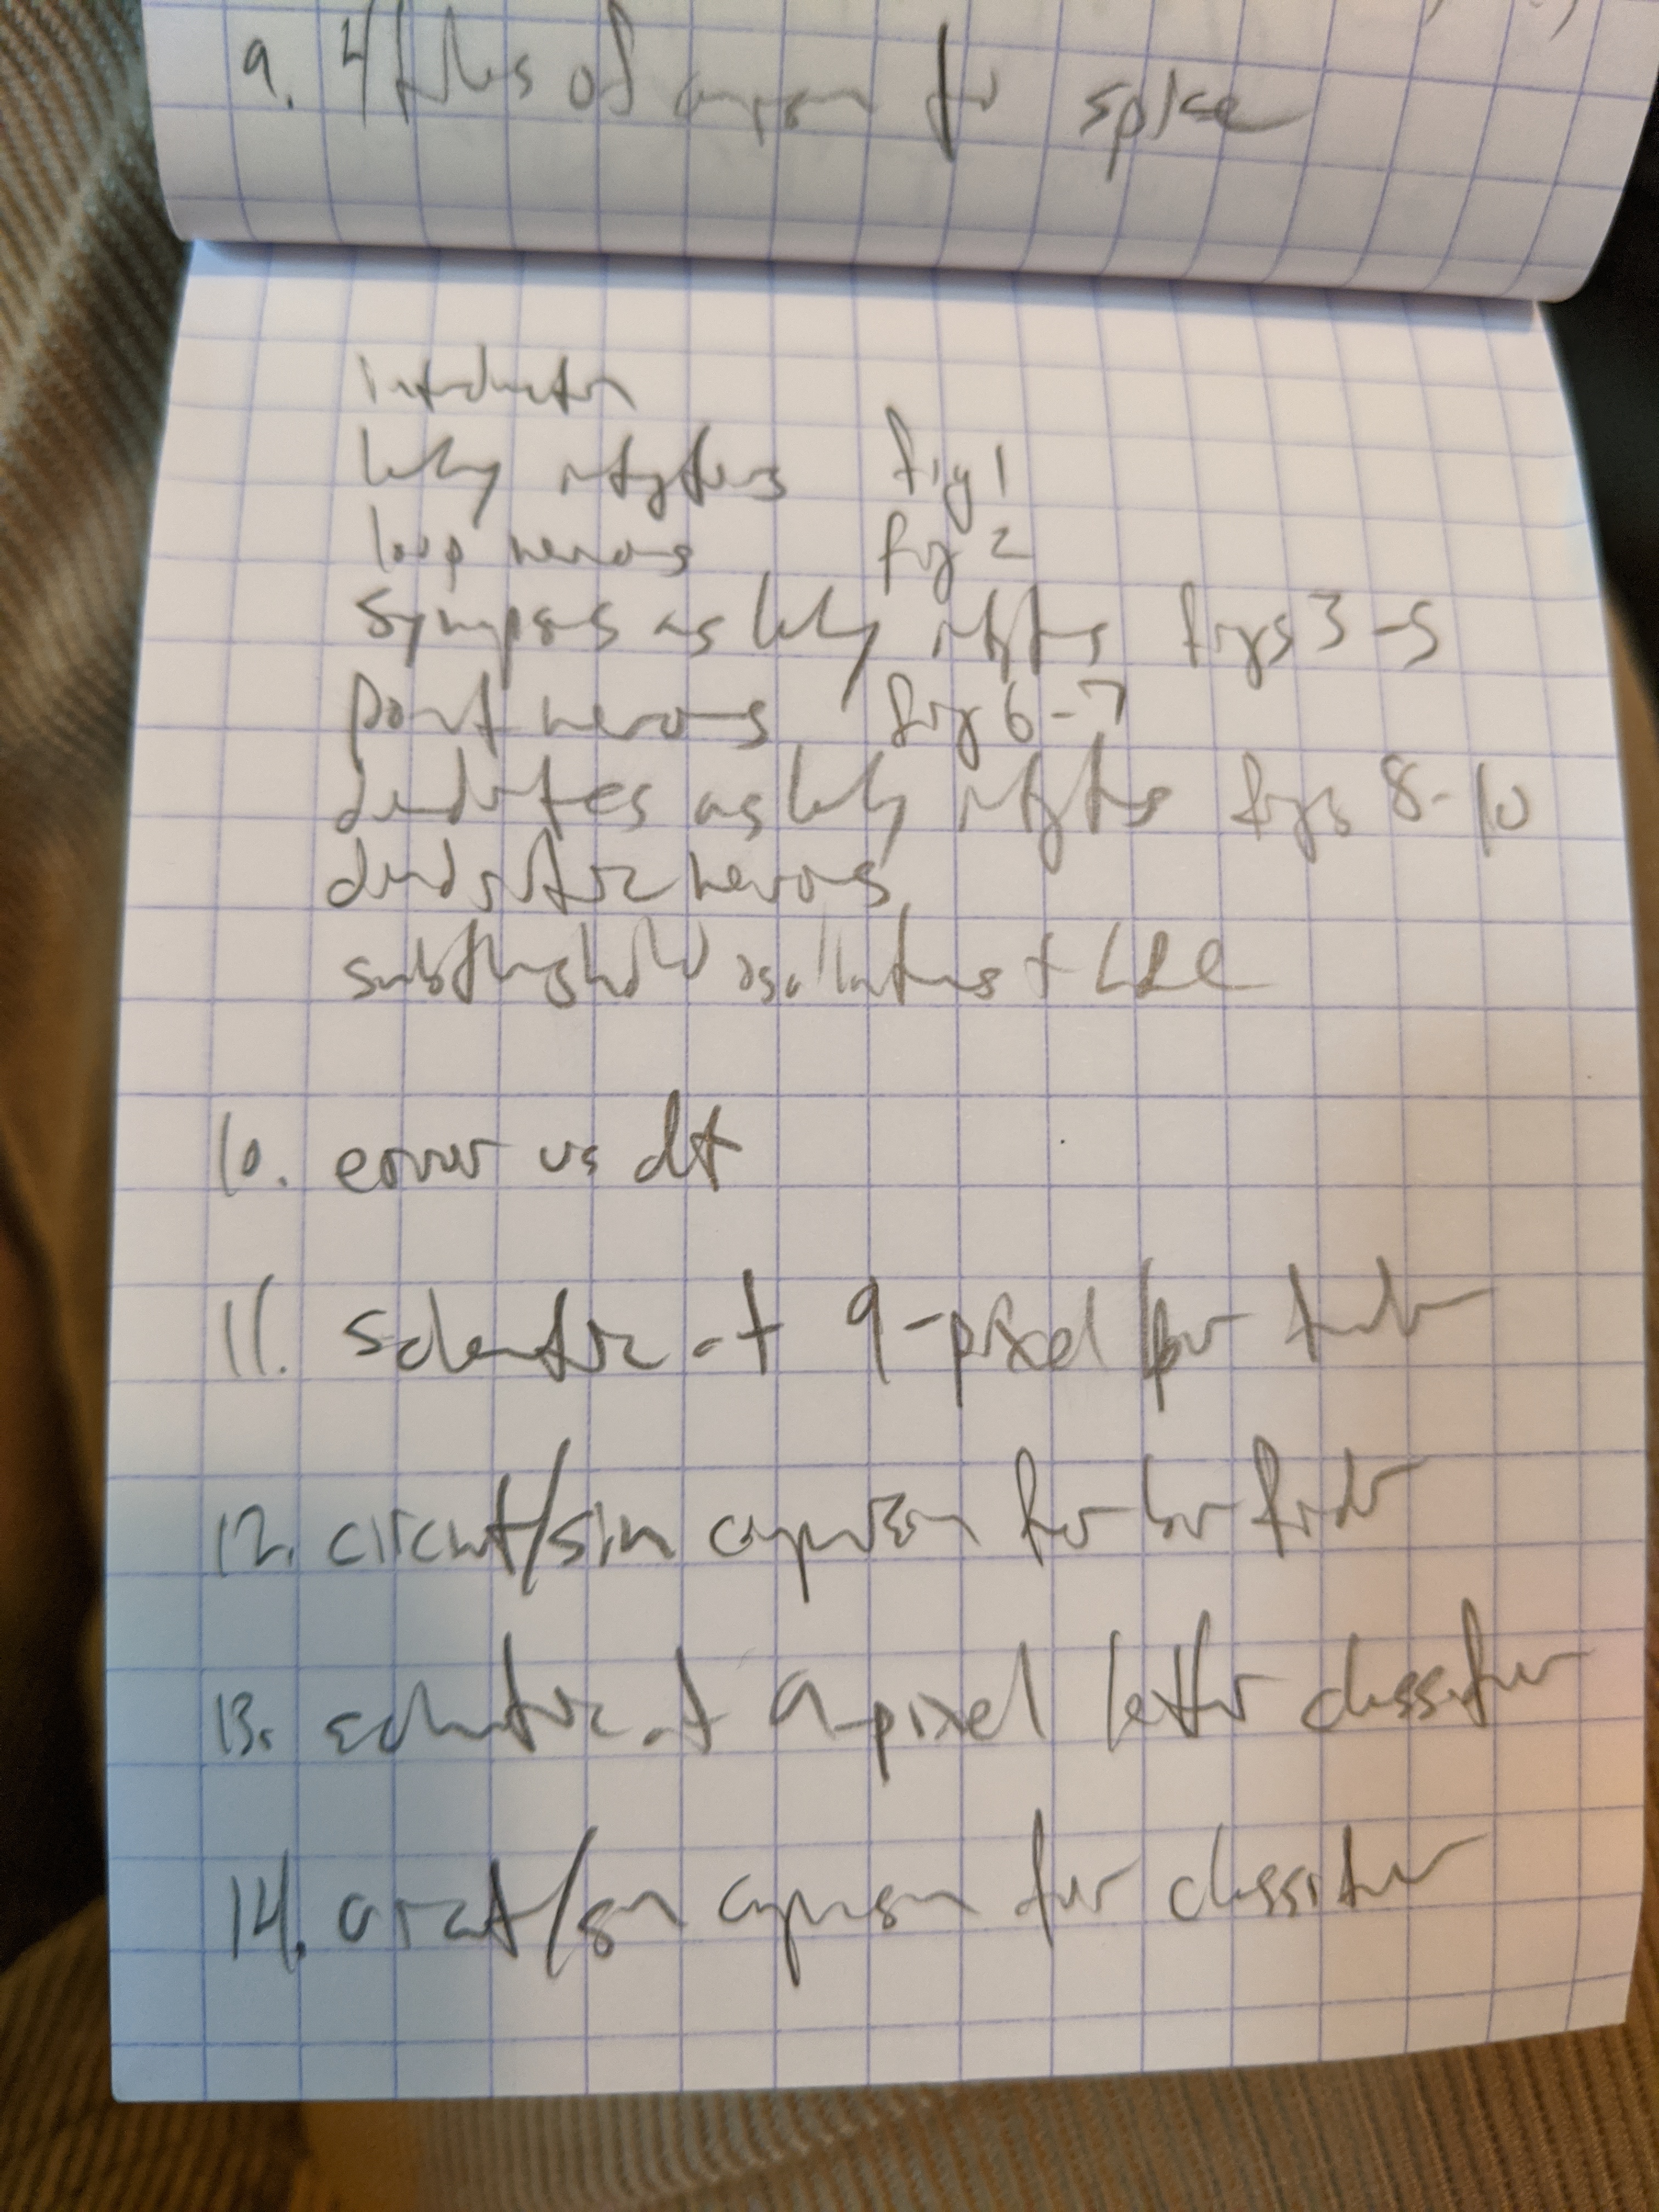 9. 4 of for spice
introduction
leaky integrators fig 1
loop neurons fig 2
Synapses as leaky integrators figs 3-5
point neurons figs 6-7
dendrites as leaky integrators figs 8-10
dendritic neurons
subthreshold oscillations +
10. error vs dt
11. schematic of 9-pixel
12. circuit/sim comparison for bar finder
13. schematic of 9-pixel letter classifier
14. circuit/sim comparison for classifier